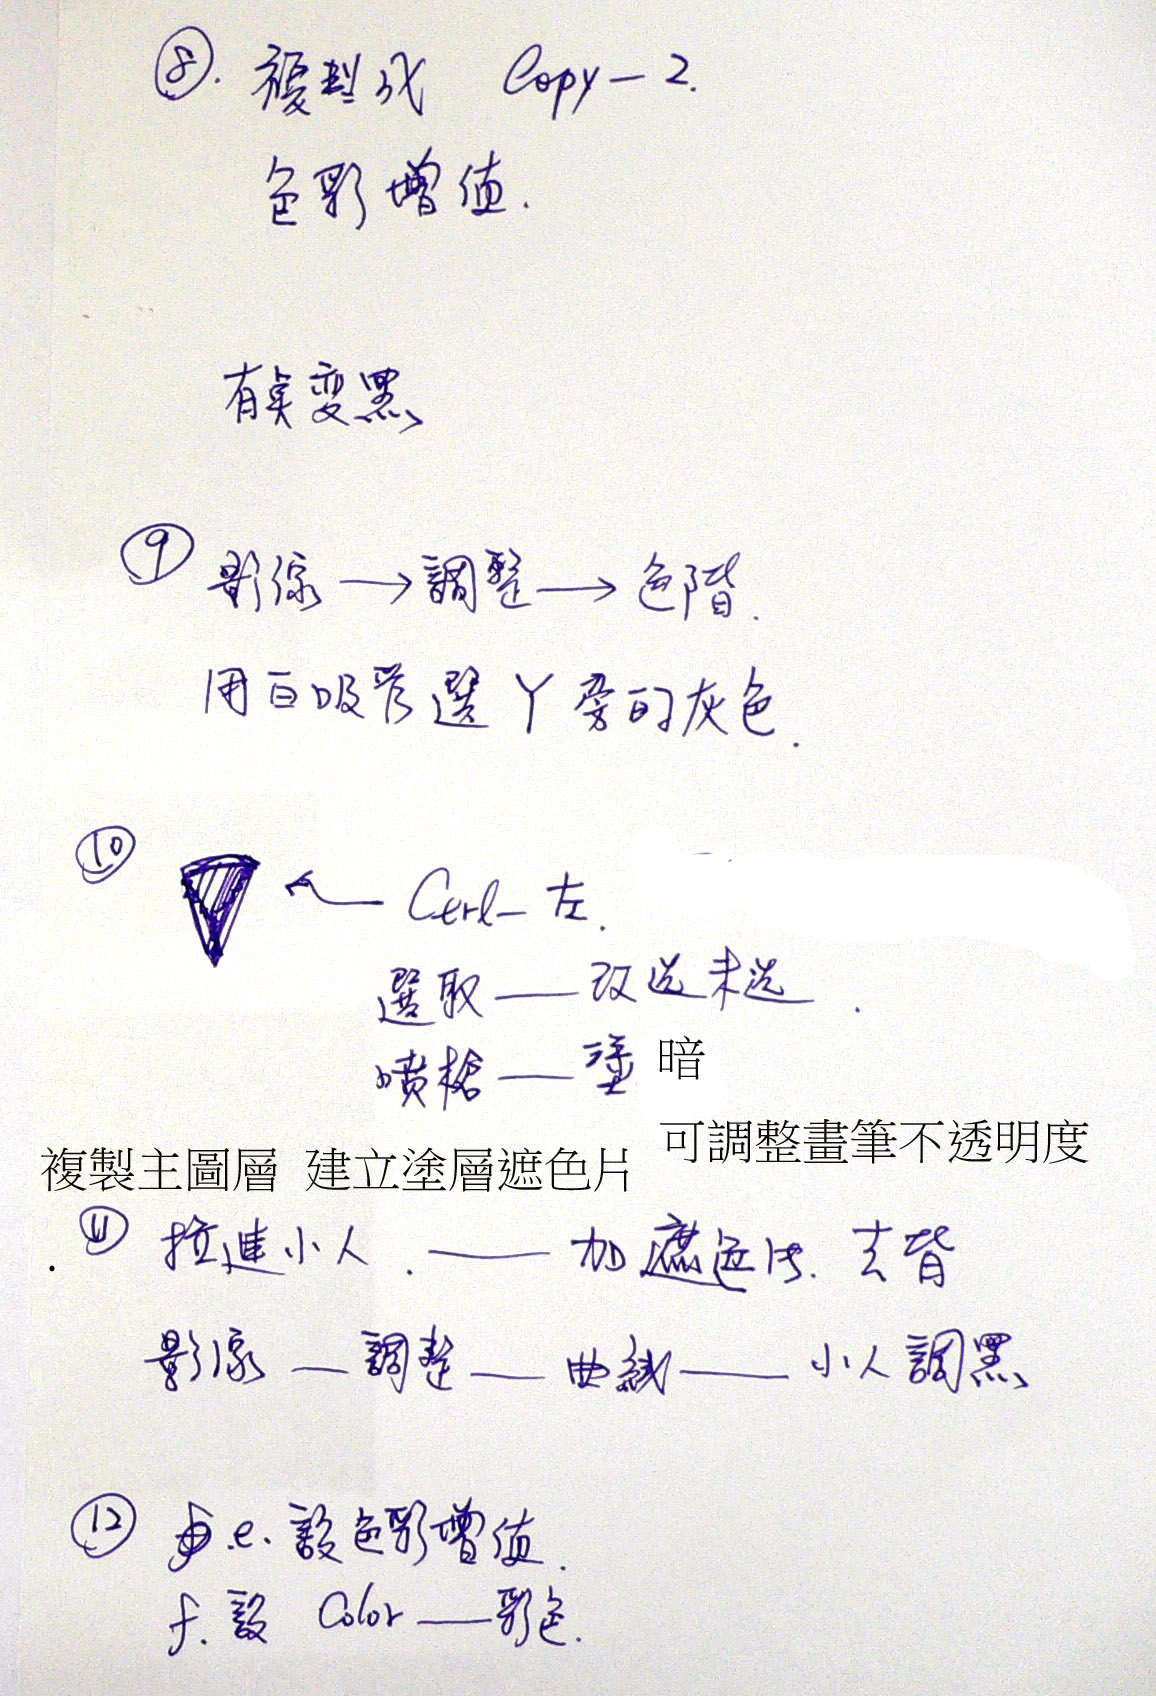 ⑧. 複製成 Copy－2.
色彩增值.
有點变黑
⑨ 影像→調整→色階.
用白吸管選丫旁的灰色.
⑩ ←Ctrl－左.
選取——改选未选.
噴槍——塗 暗
可調整畫筆不透明度
複製主圖層 建立塗層遮色片
⑪ 拉進小人.——加遮色片.去背
影像—調整—曲線——小人調黑
⑫ .e.設色彩增值.
f.設 Color——彩色.